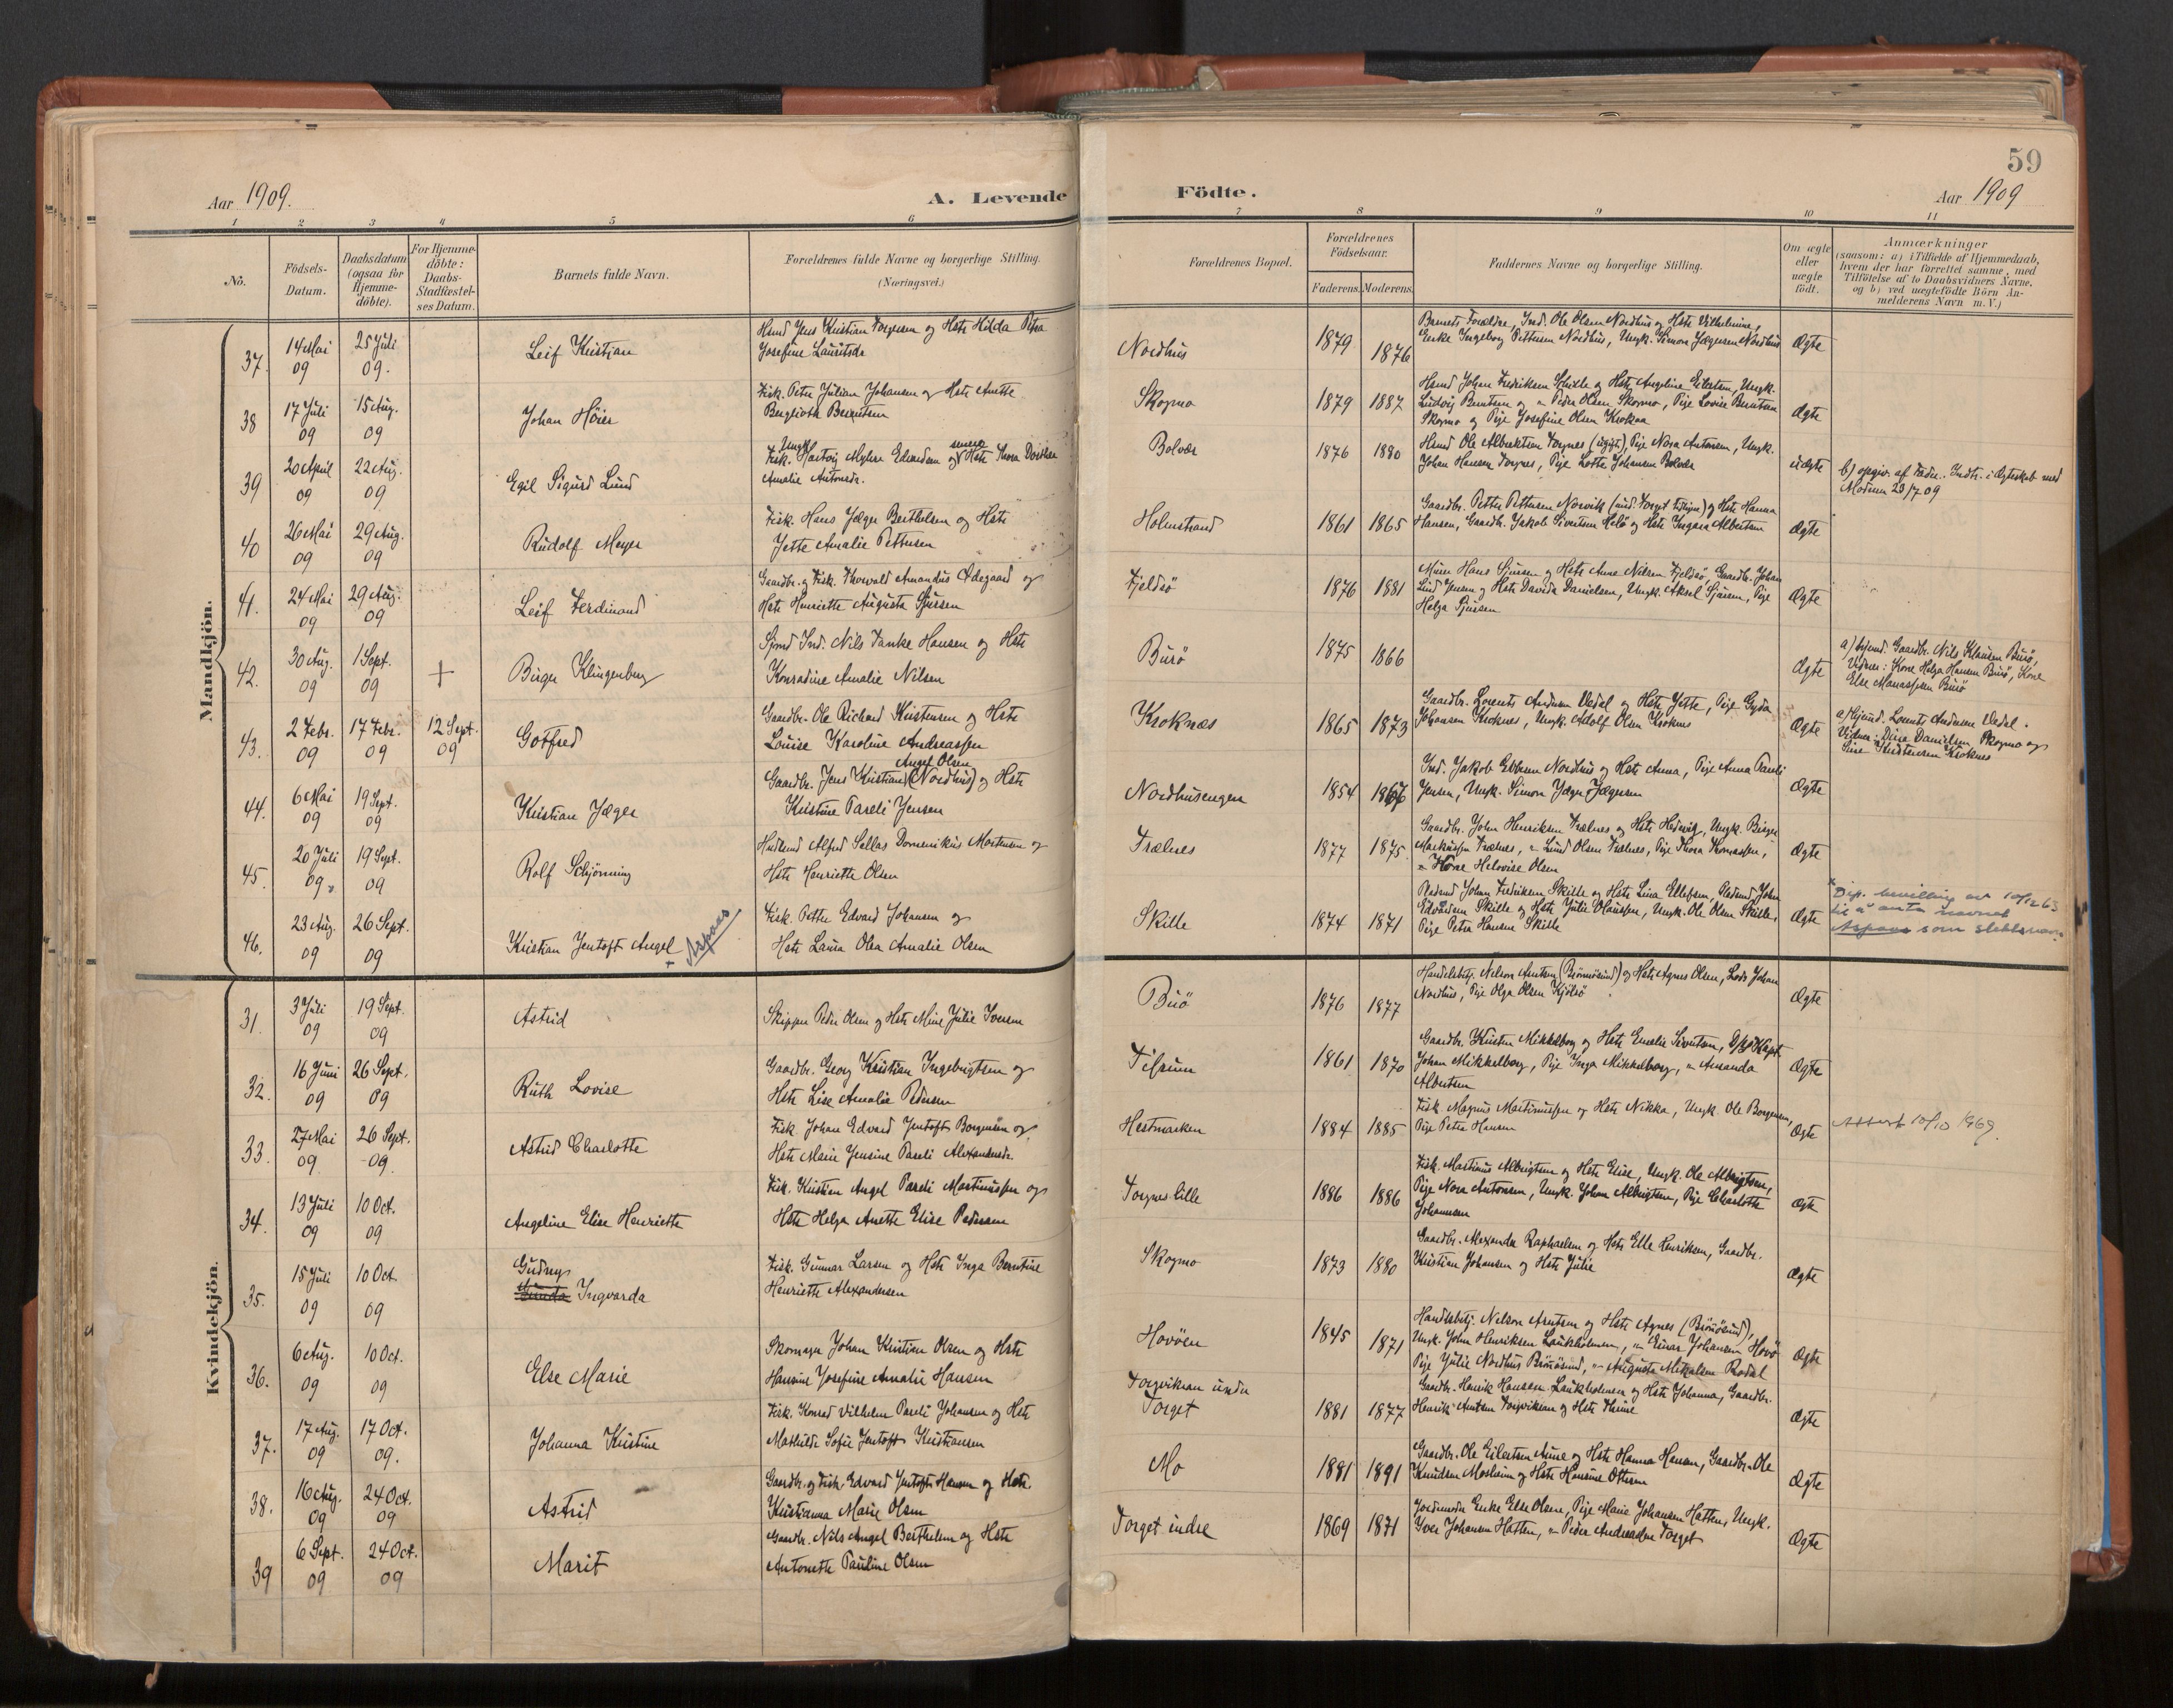 59
Aar 1909.
A. Levende
Födte.
Aar 1909
1 2 3 4 5 6 7 8 9 10 11
No.
Födsels-
Datum.
Daabsdatum
(ogsaa for
Hjemme-
döbte).
For Hjemme-
döbte:
Daabs-
Stadfæstel-
ses Datum.
Barnets fulde Navn.
Forældrenes fulde Navne og borgerlige Stilling.
(Næringsvei.)
Forældrenes Bopæl.
Forældrenes
Födselsaar.
Faderens. Moderens.
Faddernes Navne og borgerlige Stilling.
Om ægte
eller
uægte
födt.
Anmærkninger
(saasom: a) i Tilfælde af Hjemmedaab,
hvem der har forrettet samme, med
Tilföielse af to Daabsvidners Navne,
og b) ved uægtefödte Börn An-
melderens Navn m. V.)
Mandkjön.
37. 14 Mai 09 25 Juli 09. Leif Kristian
Husmd Jens Kristian Torgersen og Hstr Hilda Petra
Josefine Lauritsdr
Nordhus 1879 1876
Barnets Forældre, Ind. Ole Olsen Nordhus og Hstr Vilhelmine,
Enke Ingeborg Pettersen Nordhus, Ungk. Simon Jægersen Nordhus
Ægte
38 17 Juli 09 15 Aug. 09 Johan Höier
Fisk. Peter Julian Johansen og Hstr Anette
Bergliot Berntsen
Skogmo 1879 1887
Husmd Johan Fredriksen Skille og Hstr Angeline Eilertsen, Ungk.
Ludvig Berntsen og " Peder Olsen Skogmo, Pige Lovise Berntsen
Skogmo og Pige Josefine Olsen Kroknes
Ægte
39 20 April 09 22 Aug. 09 Egil Sigurd Lund
Ungk. senere
Fisk. Hartvig Myhre Edvardsen og Hstr Thora Dorthea
Amalie Antonsdr.
Bolvær 1876 1880
Husmd Ole Albriktsen Torgnes (ugift), Pige Nora Antonsen, Ungk.
Johan Hansen Torgnes, Pige Lotte Johansen Bolvær
uægte
b) opgiv. af Fader. Indtr. i Ægteskab med
Moderen 23/7 09
40 26 Mai 09 29 Aug. 09 Rudolf Meyer
Fisk. Hans Jæger Berthelsen og Hstr
Jette Amalie Pettersen
Holmstrand 1861 1865
Gaardbr. Petter Pettersen Norvik og Hstr Hanna
Hansen, Gaardbr. Jakob Sivertsen Helö og Hstr Ingara Albertsen
Ægte
41. 24 Mai 09 29 Aug. 09 Leif Ferdinand
Gaardbr. og Fisk. Thorvald Amandus Ødegaard og
Hstr Henriette Augusta Sjursen
Fjeldsö 1876 1881
Murer Hans Sjursen og Hstr Anne Nilsen Fjeldsö, Gaardbr. Johan
Lind Jensen og Hstr Davida Danielsen, Ungk. Aksel Sjursen, Pige
Helga Sjursen
Ægte
42. 30 Aug. 09 1 Sept. 09 + Birger Klingenberg
Sjmd Ind. Nils Tanke Hansen og Hstr
Konradine Amalie Nilsen
Burö 1875 1866
Ægte
a) hjemd. Gaardbr. Nils Klausen Burö,
Vidner: Kone Helga Hansen Burö, Kone
Else Manassen Burö
43. 2 Febr. 09 17 Febr. 09 12 Sept. 09 Gotfred
Gaardbr. Ole Richard Kristensen og Hstr
Louise Karoline Andreassen
Kroknæs 1865 1873
Gaardbr. Lorents Andersen Vedal og Hstr Jette, Pige Gyda
Johansen Kroknes, Ungk. Adolf Olsen Kroknes
Ægte
a) Hjemd. Lorents Andersen Vedal.
Vidner: Dina Danielsen Skogmo og
Sine Kristensen Kroknes
44. 6 Mai 09 19 Sept. 09 Kristian Jæger
Angel Olsen
Gaardbr. Jens Kristian (Nordhus) og Hstr
Kristine Pareli Jensen
Nordhusengen 1854 1867
Ind. Jakob Ebbesen Nordhus og Hstr Anna, Pige Anna Pareli
Jensen, Ungk. Simon Jæger Jægersen
Ægte
45. 20 Juli 09. 19 Sept. 09 Rolf Schjönning
Husmd Alfred Sellas Domenikus Mortensen og
Hstr Henriette Olsen
Trælnes 1877 1875
Gaardbr. John Henriksen Trælnes og Hstr Hedevig, Ungk. Birger
Markussen Trælnes, " Lund Olsen Trælnes, Pige Thora Thomassen,
" Helovise Olsen
Ægte
46. 23 Aug. 09 26 Sept. 09 Kristian Jentoft Angel + Aspaas
Fisk. Petter Edvard Johansen og
Hstr Laura Olea Amalie Olsen
Skille 1874 1871
Pladsmd Johan Fredriksen Skille og Hstr Lina Ellefsen, Pladsmd John
Edvardsen Skille og Hstr Julie Olaussen, Ungk. Ole Olsen Skille,
Pige Petra Hansen Skille
Ægte
x Dep. bevilling av 10/12 63
til å anta navnet
Aspaas som slektsnavn.
Kvindekjön.
31. 3 Juli 09 19 Sept. 09 Astrid
Skipper Peder Olsen og Hstr Mine Julie Iversen
Buö 1876 1877
Handelsbetj. Nelson Arntsen (Brönösund) og Hstr Agnes Olsen, Lods Johan
Nordhus, Pige Olga Olsen Kjölsö
Ægte
32. 16 Juni 09 26 Sept. 09 Ruth Lovise
Gaardbr. Georg Kristian Ingebrigtsen og
Hstr Lise Amalie Pedersen
Tilrum 1861 1870
Gaardbr. Kristen Mikkelborg og Hstr Emelie Sivertsen, Kapt.
Johan Mikkelborg, Pige Inga Mikkelborg, " Amanda
Albertsen
Ægte
33. 27 Mai 09 26 Sept. 09. Astrid Charlotte
Fisk. Johan Edvard Jentoft Borgersen og
Hstr Marie Jensine Pareli Alexandersdr.
Hestmarken 1884 1885
Fisk. Magnus Martinussen og Hstr Nikka, Ungk. Ole Borgersen,
Pige Petra Hansen
Ægte
Attest 10/10 1969.
34. 13 Juli 09 10 Oct. 09 Angeline Elise Henriette
Fisk. Kristian Angel Pareli Martinussen og
Hstr Helga Anette Elise Pedersen
Torgnes lille 1886 1886
Fisk. Martinus Albrigtsen og Hstr Elise, Ungk. Ole Albrigtsen,
Pige Nora Antonsen, Ungk. Johan Albrigtsen, Pige Charlotte
Johannesen
Ægte
35. 15 Juli 09 10 Oct. 09 Gudny
Gunda Ingvarda
Fisk. Gunnar Larsen og Hstr Inga Berntine
Henriette Alexandersen
Skogmo 1873 1880
Gaardbr. Alexander Raphaelsen og Hstr Elle Henriksen, Gaardbr.
Kristian Johansen og Hstr Julie
Ægte
36. 6 Aug. 09 10 Oct. 09 Else Marie
Skomager Johan Kristian Olsen og Hstr
Hansine Josefine Amalie Hansen
Hovöen 1845 1871
Handelsbetj. Nelson Arntsen og Hstr Agnes (Brönösund),
Ungk. John Henriksen Laukholmen, " Einar Johansen Hovö
Pige Julie Nordhus Brönösund, " Augusta Mikalsen Rodal
Ægte
37. 17 Aug. 09 17 Oct. 09. Johanna Kristine
Fisk. Konrad Vilhelm Pareli Johansen og Hstr
Mathilde Sofie Jentoft Kristiansen
Torgvikran under
Torget 1881 1877
Gaardbr. Henrik Hansen Laukholmen og Hstr Johanna, Gaardbr.
Henrik Arntsen Torgvikran og Hstr Thrine
Ægte
38. 16 Aug. 09 24 Oct. 09 Astrid
Gaardbr. og Fisk. Edvard Jentoft Hansen og Hstr.
Kristianna Marie Olsen
Mo 1881 1891
Gaardbr. Ole Eilertsen Aune og Hstr Hanna Hansen, Gaardbr. Ole
Knudsen Mosheim og Hstr Hansine Ottesen
Ægte
39 6 Sept. 09 24 Oct. 09 Marit
Gaardbr. Nils Angel Berthelsen og Hstr
Antonette Pauline Olsen
Torget indre 1869 1871
Jordmoder Enke Else Olsen, Pige Marie Johansen Hatten, Ungk.
Iver Johansen Hatten, " Peder Andreassen Torget
Ægte